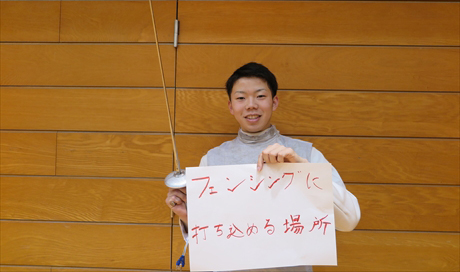 フェンシングに
打ち込める場所